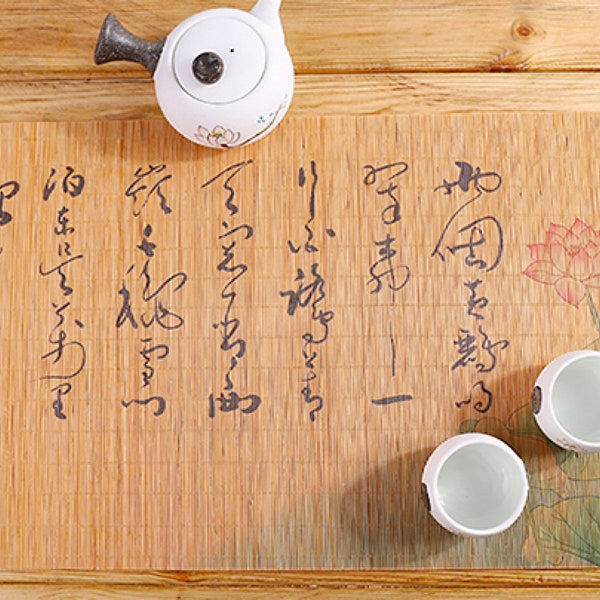 两个黄鹂鸣
翠柳一
行白鹭上青
天窗含西
岭千秋雪门
泊东吴万里